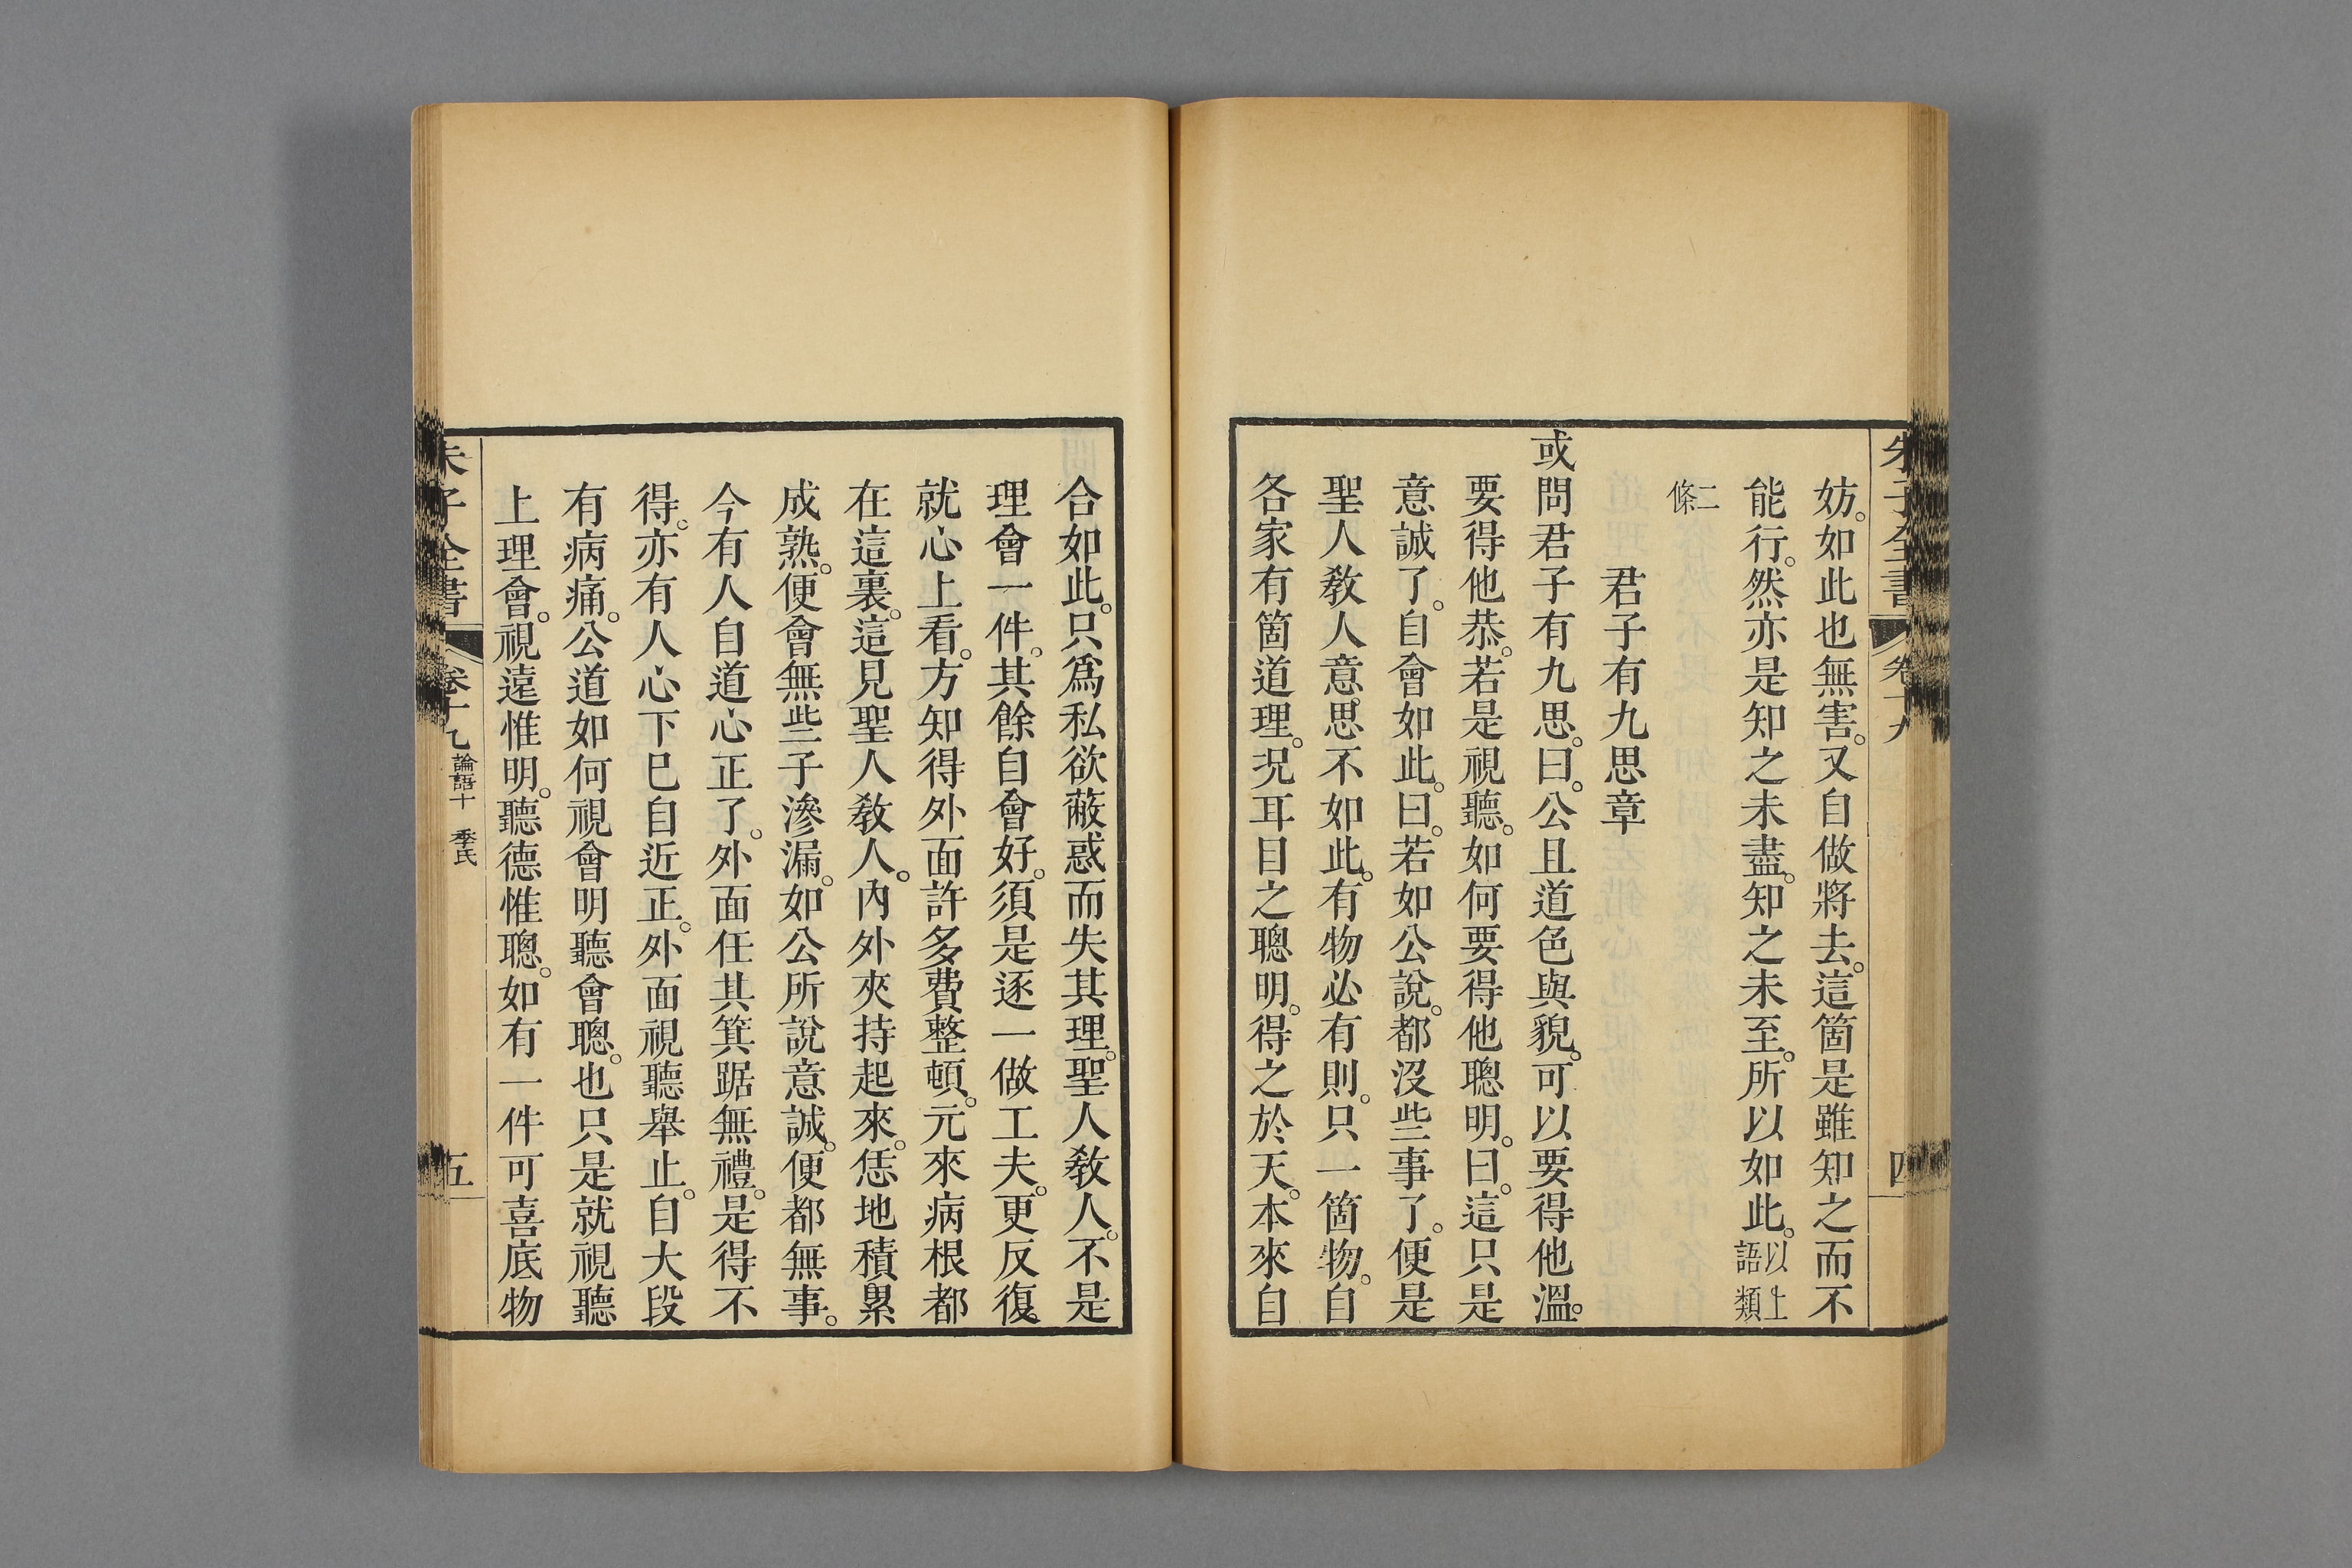 朱子全書 卷十九 四
妨。如此也無害。又自做將去。這箇是雖知之而不
能行。然亦是知之未盡。知之未至。所以如此。以上語類
二條
君子有九思章
或問君子有九思。曰。公且道色與貌。可以要得他溫。
要得他恭。若是視聽。如何要得他聰明。曰。這只是
意誠了。自會如此。曰。若如公說。都沒些事了。便是
聖人敎人意。思不如此。有物必有則。只一箇物。自
各家有箇道理。況耳目之聰明。得之於天。本來自
合如此。只爲私欲蔽惑而失其理。聖人敎人。不是
理會一件。其餘自會好。須是逐一做工夫。更反復
就心上看。方知得外面許多費整頓。元來病根都
在這裏。這見聖人敎人。內外夾持起來。恁地積累
成熟。便會無些子滲漏。如公所說意誠。便都無事。
今有人自道心正了。外面任其箕踞無禮。是得不
得。亦有人心下巳自近正。外面視聽舉止。自大段
有病痛。公道如何視會明聽會聰。也只是就視聽
上理會。視遠惟明。聽德惟聰。如有一件可喜底物
朱子全書 卷十九 論語十 季氏 五